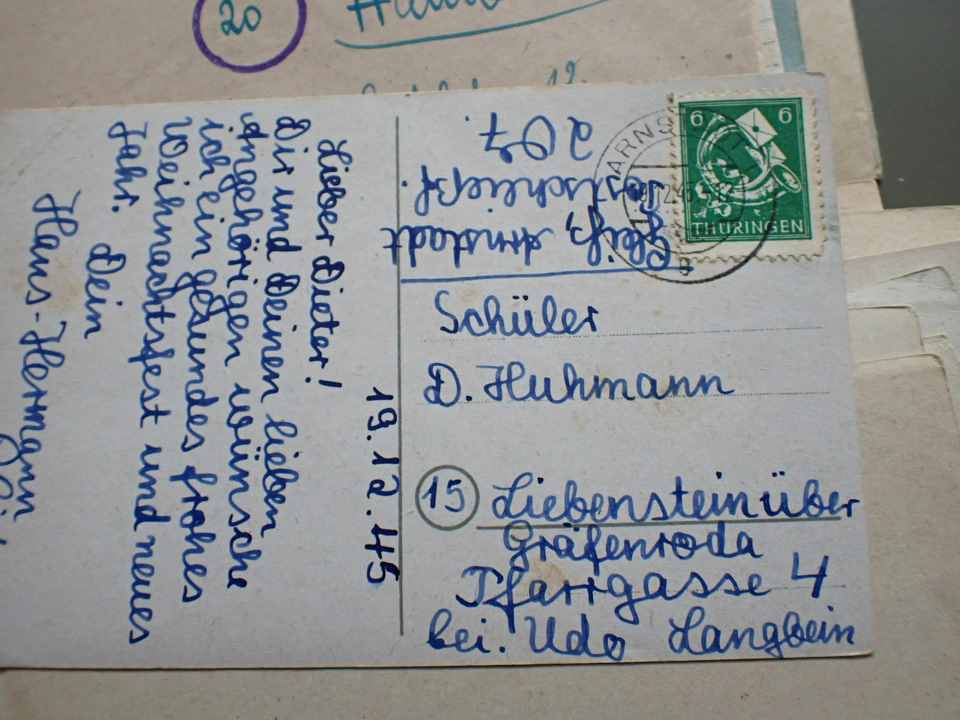 20
Lieber Dieter!
Dir und Deinen lieben
Angehörigen wünsche
ich ein gesundes frohes
Weihnachtsfest und neues
Jahr.
Dein
Hans-Hermann
19.12.45
Arnstadt
6 6
THÜRINGEN
ARNS
Schüler
D. Huhmann
15 Liebenstein über
Gräfenroda
Pfarrgasse 4
bei. Udo Langbein